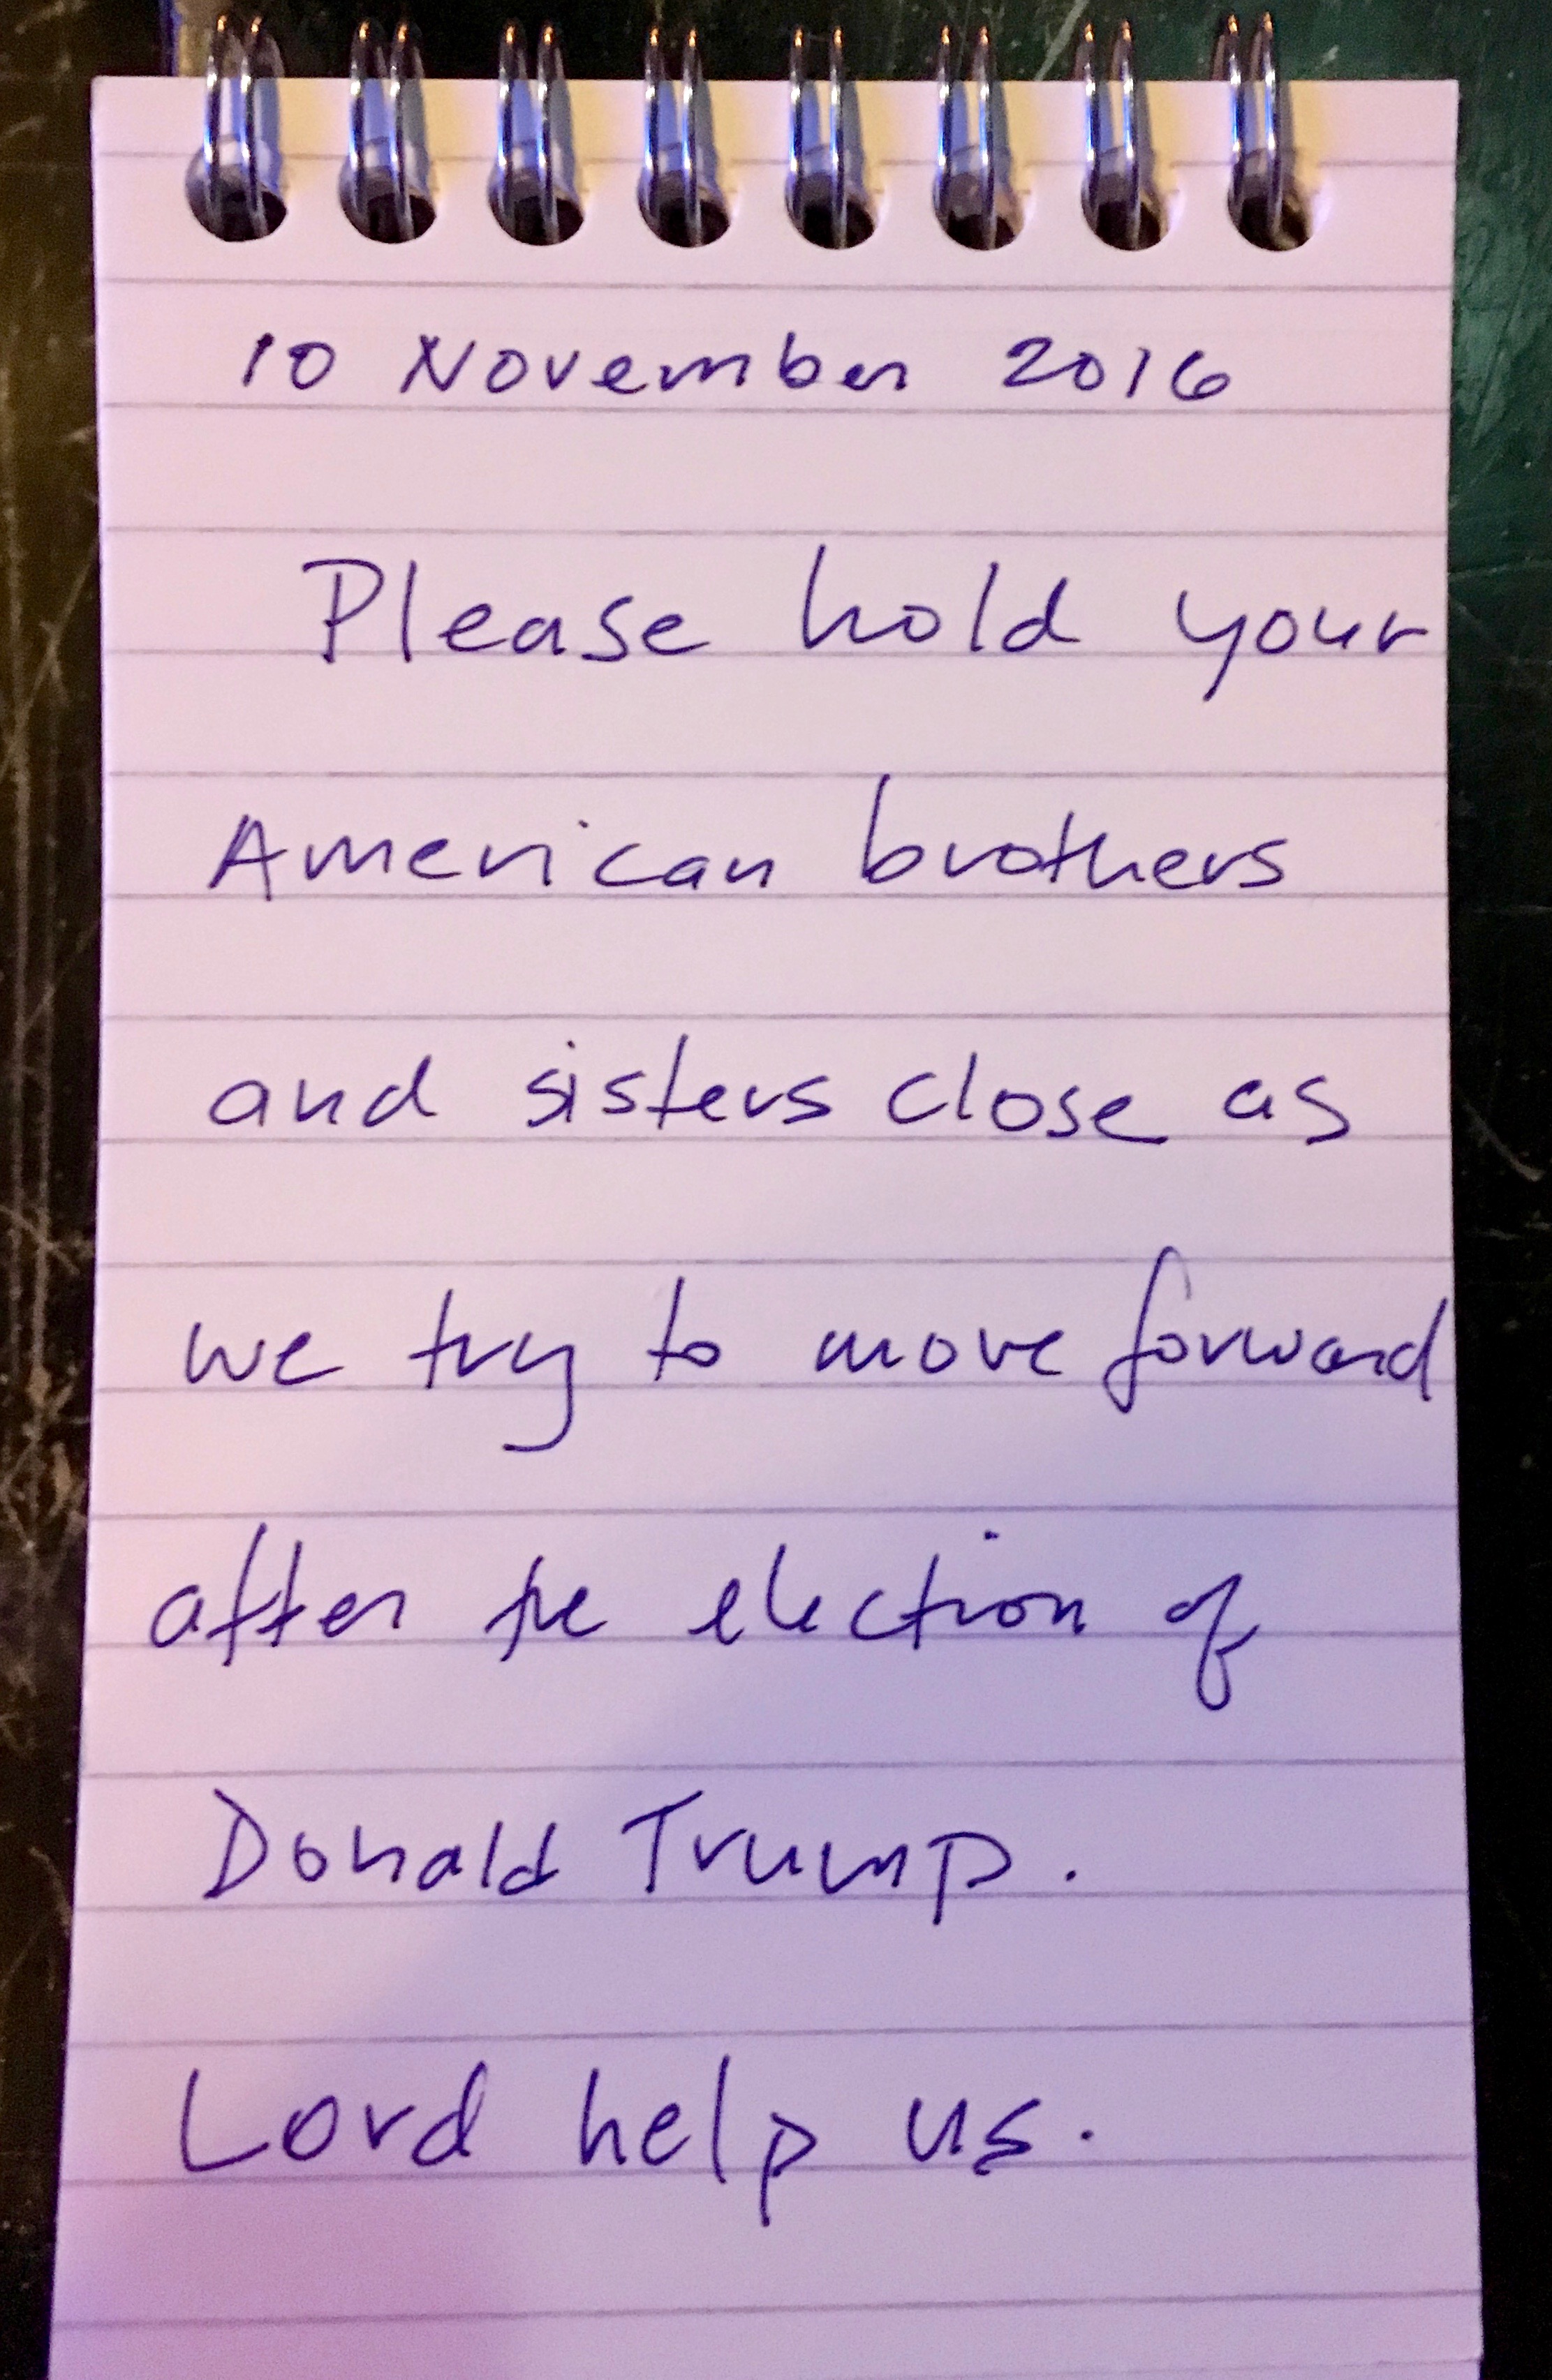 10 November 2016
Please hold your
American brothers
and sisters close as
we try to move forward
after the election of
Donald Trump.
Lord help us.